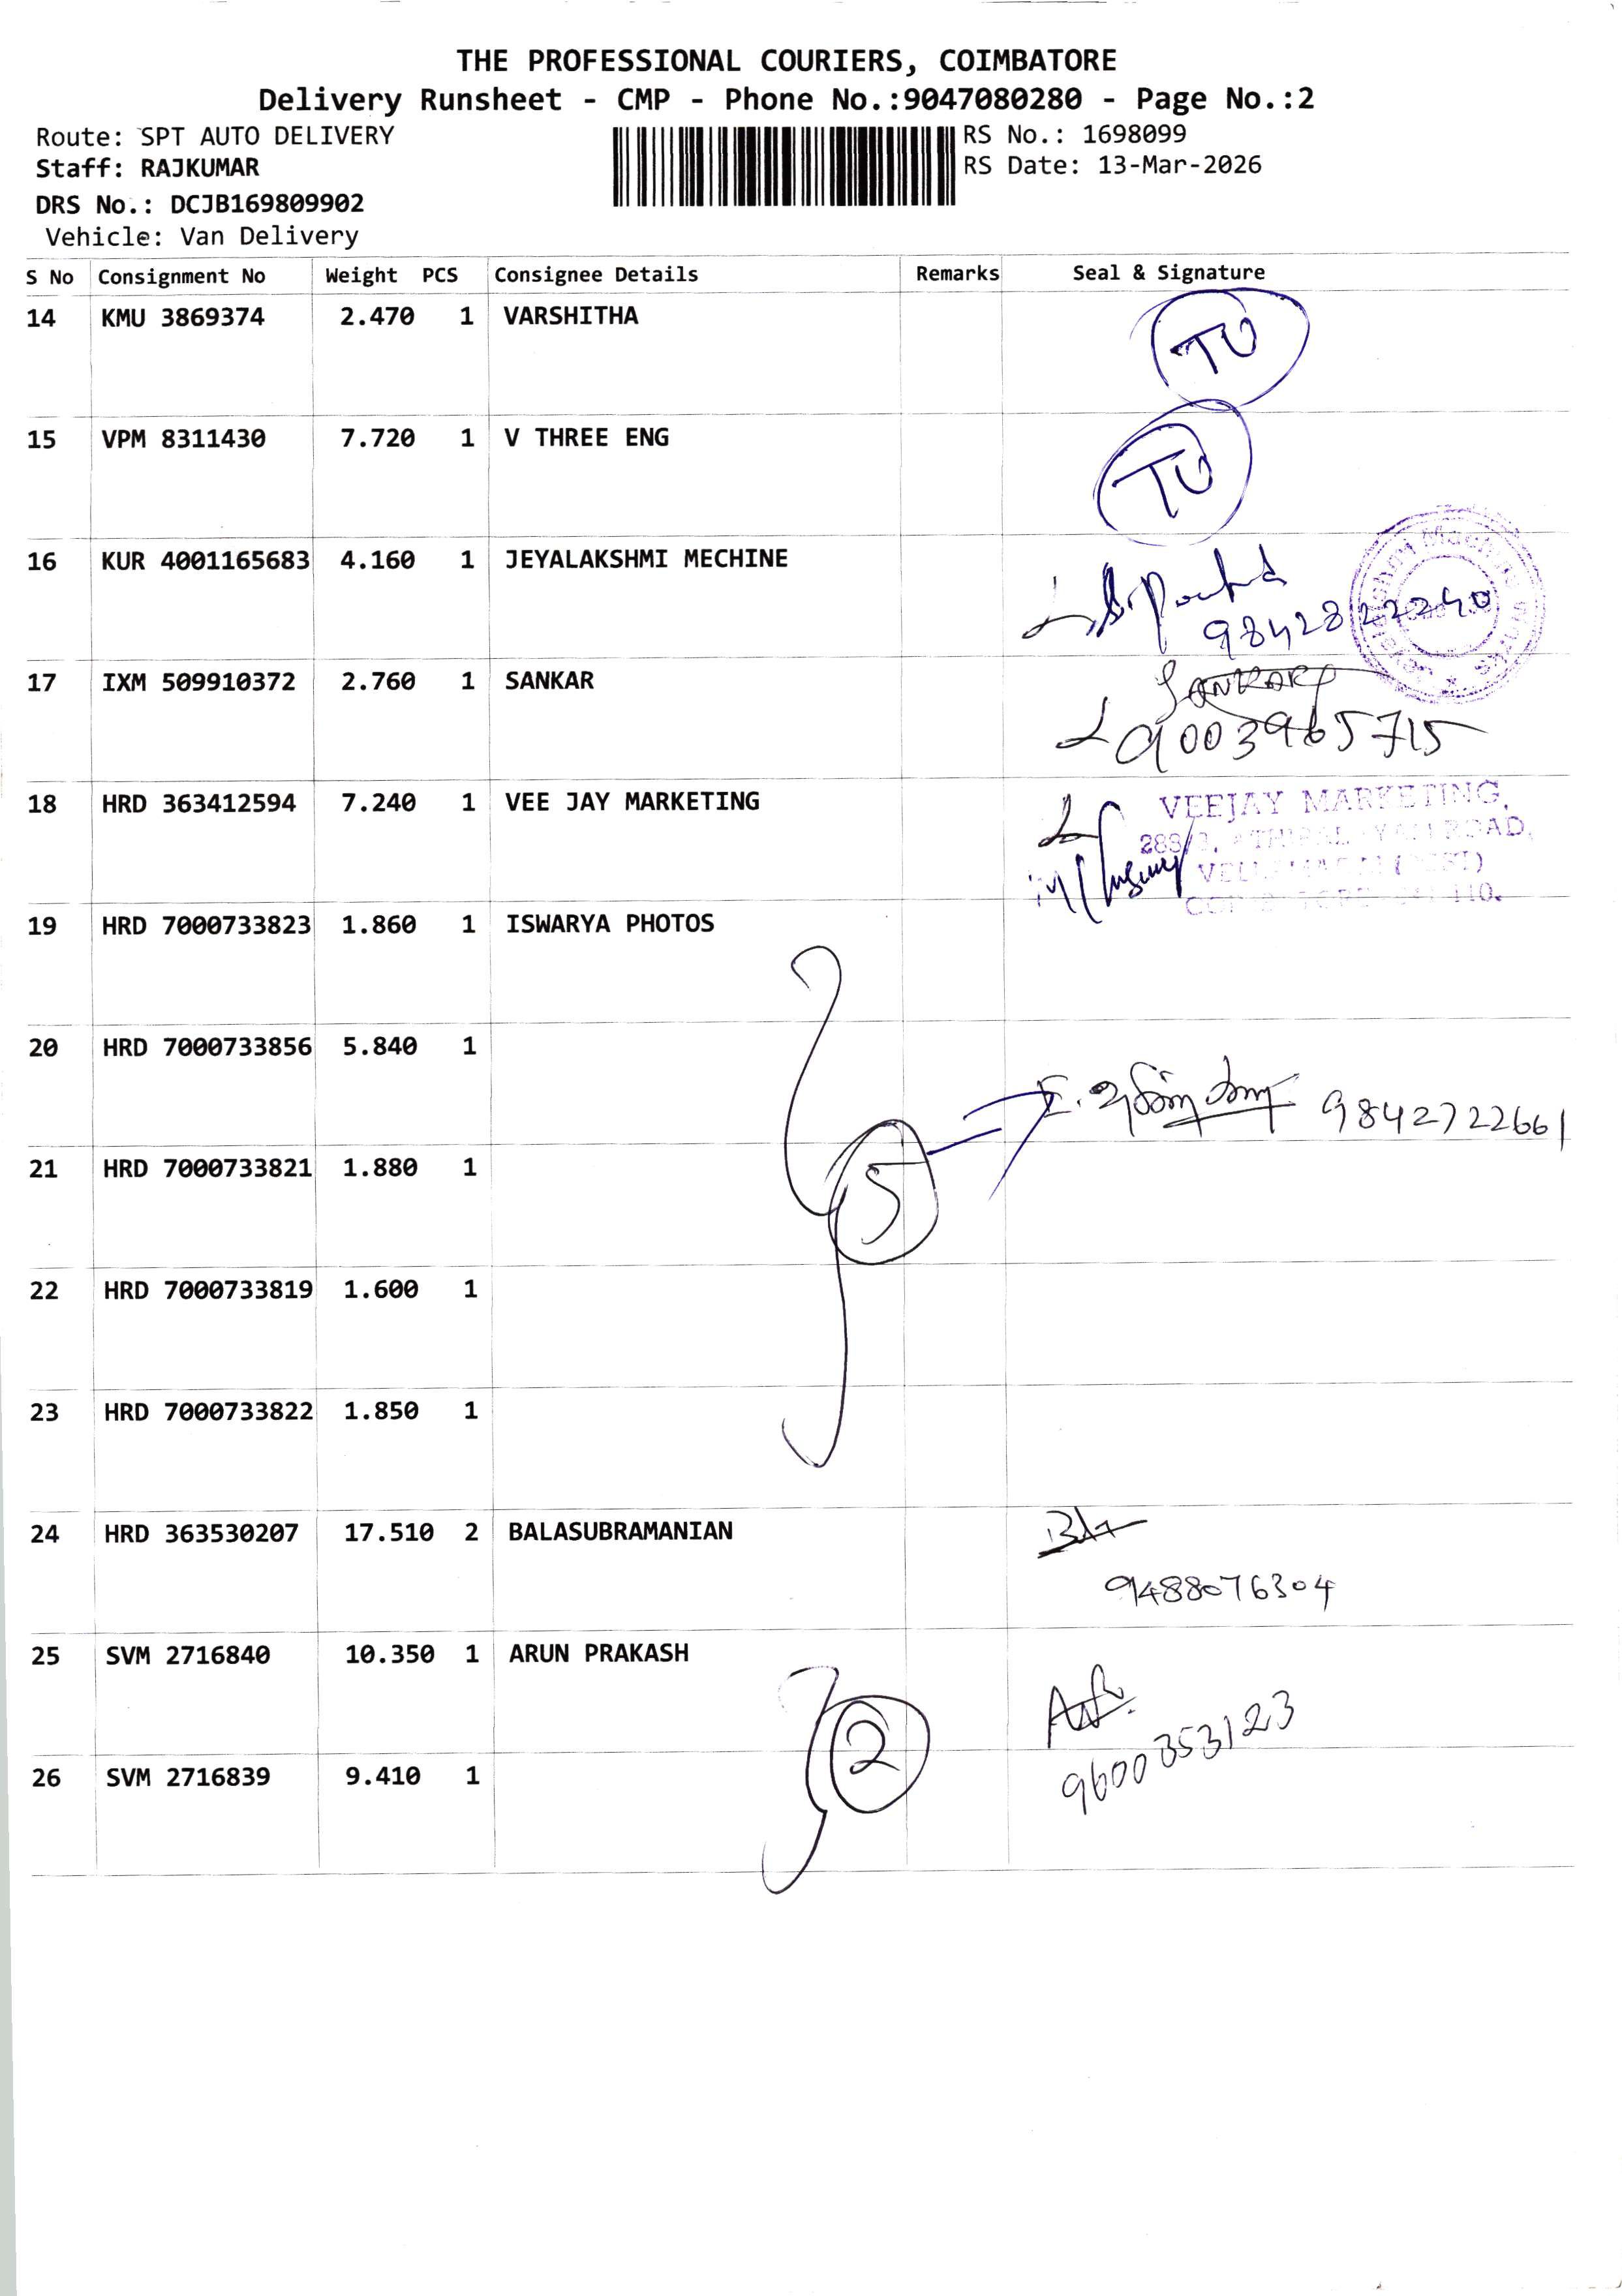 THE PROFESSIONAL COURIERS, COIMBATORE
Delivery Runsheet - CMP - Phone No.:9047080280 - Page No.:2
Route: SPT AUTO DELIVERY
Staff: RAJKUMAR
DRS No.: DCJB169809902
Vehicle: Van Delivery
RS No.: 1698099
RS Date: 13-Mar-2026
S No Consignment No Weight PCS Consignee Details Remarks Seal & Signature
14 KMU 3869374 2.470 1 VARSHITHA TU
15 VPM 8311430 7.720 1 V THREE ENG TU
16 KUR 4001165683 4.160 1 JEYALAKSHMI MECHINE
9842822240
17 IXM 509910372 2.760 1 SANKAR SANKAR
9003965715
18 HRD 363412594 7.240 1 VEE JAY MARKETING VEEJAY MARKETING,
19 HRD 7000733823 1.860 1 ISWARYA PHOTOS
20 HRD 7000733856 5.840 1
9842722661
21 HRD 7000733821 1.880 1 5
22 HRD 7000733819 1.600 1
23 HRD 7000733822 1.850 1
24 HRD 363530207 17.510 2 BALASUBRAMANIAN
9488076304
25 SVM 2716840 10.350 1 ARUN PRAKASH
2
9600353123
26 SVM 2716839 9.410 1